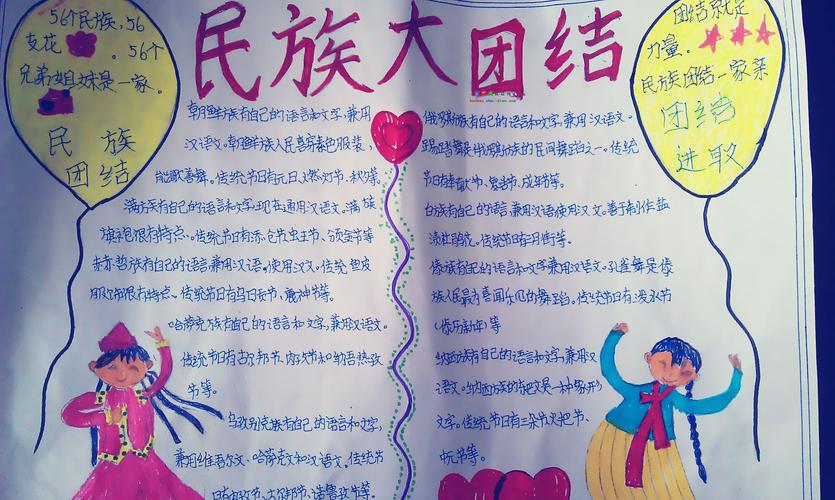 民族大团结
56个民族，56
支花。56个
兄弟姐妹是一家。
民族
团结
团结就是
力量。
民族团结一家亲
团结
进取
朝鲜族有自己的语言和文字，兼用
汉语文。朝鲜族人民喜穿素色服装，
能歌善舞。传统节日有元日、燃灯节、秋夕等。
满族有自己的语言和文字，现在通用汉语文。满族
旗袍很有特点。传统节日有添仓节、虫王节、颁金节等
赫哲族有自己的语言兼用汉语。使用汉文。传统鱼皮
服饰很有特点。传统节日有乌日贡节、鹿神节等。
哈萨克族有自己的语言和文字，兼用汉语文。
传统节日有古尔邦节、肉孜节和纳吾热孜
节等。
乌孜别克族有自己的语言和文字，
兼用维吾尔文、哈萨克文和汉语文。传统节
日有肉孜节、古尔邦节、诺鲁孜节等。
俄罗斯族有自己的语言和文字，兼用汉语文。
踢踏舞是俄罗斯族的民间舞蹈之一。传统
节日有奉献节、复活节、成年节等。
白族有自己的语言兼用汉语使用汉文。善于制作盐
渍杜鹃花。传统节日有三月街等。
傣族有自己的语言和文字兼用汉语文。孔雀舞是傣
族人民最为喜闻乐见的舞蹈。传统节日有泼水节
（傣历新年）等
纳西族有自己的语言和文字，兼用汉
语文。纳西族的东巴文是一种象形
文字。传统节日有三朵节、火把节、